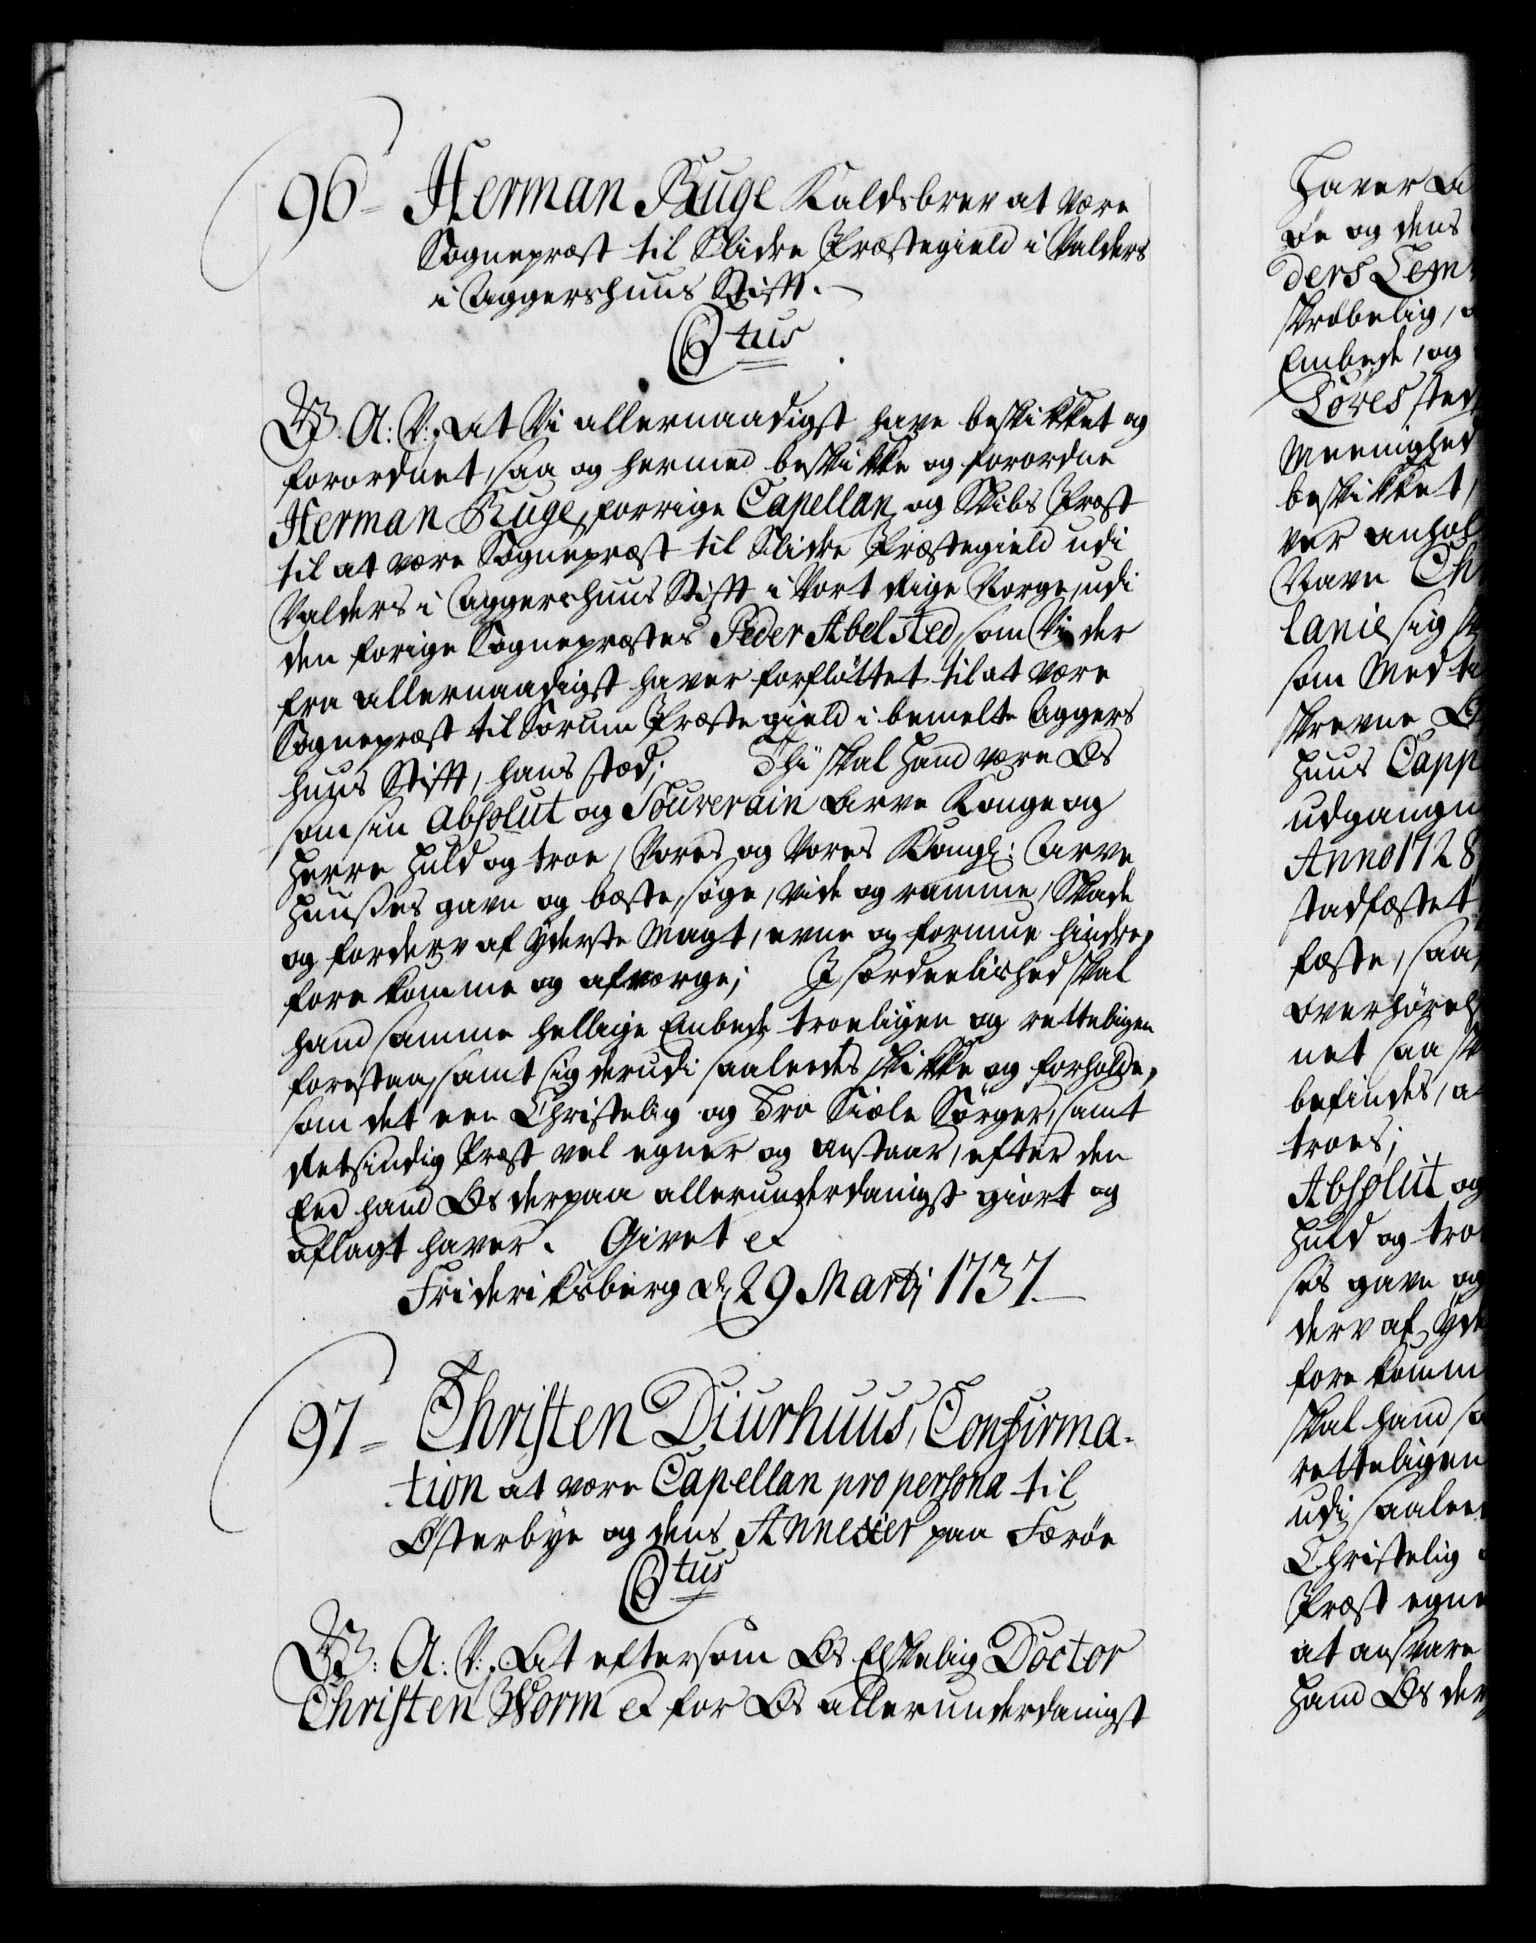 96 = Herman Ruge Kaldsbrev at være
Sognepræst til Slidre Præstegield i Valders
i Aggershuus Stift. —
C6tus
W. A: V:, at Vi allernaadigst have beskikket og
forordnet, saa og hermed beskikke og forordne
Herman Ruge, forrige Capellan og Skibs Præst
til at være Sognepræst til Slidre Præstegield udi
Valders i Aggershuus Stift i Vort Rige Norge, udi
den forige Sognepræstes Peder Abelsted, som Vi der
fra allernaadigst haver forfløttet til at være
Sognepræst til Sørum Præstegield i bemelte Aggers
huus Stift, hans stæd; Thi skal hand være Os
som sin Absolut og Souverain Arve Konge og
Herre huld og troe, Vores og Vores Kongl: Arve
Huusses gavn og bæste, søge, vide og ramme, Skade
og forderv af yderste Magt, evne og formue hindre,
fore komme og afværge; I særdeelished skal
hand samme hellige Embede troeligen og retteligen
forestaa, samt sig derudi saaledes skikke og forholde,
som det een Christelig og Tro Siæle Sørger, samt
Retsindig Præst vel egner og anstaar, efter den
Eed hand Os derpaa allerunderdanigst giort og
aflagt haver. Givet &
Frideriksberg d, 29 Martj 1737 —
97 = Christen Diurhuus, Confirma-
tion at være Capellan pro persona til
Østerbye og dens Annexer paa Færøe
C6tus
W: A: V:, At eftersom Os Elskelig Doctor
Christen Worm & for Os allerunderdanigst
haver
øe og dens
ders Lem
skrøbelig,
Embede, og
Løves sted
Meenighed
beskikket,
ver anhol
Navn Ch
lanie, sig
som Med
skrevne
huus Capp
udgangn
Anno 1728
stadfæstet
fæste, saa
overhøreh
net saa sk
befindes, a
troes;
Absolut og
huld og tro
ses gavn og
derv af yde
fore komm
skal hand sa
retteligen
udi saalee
Christelig
Præst egne
at ansvare
hand Os der